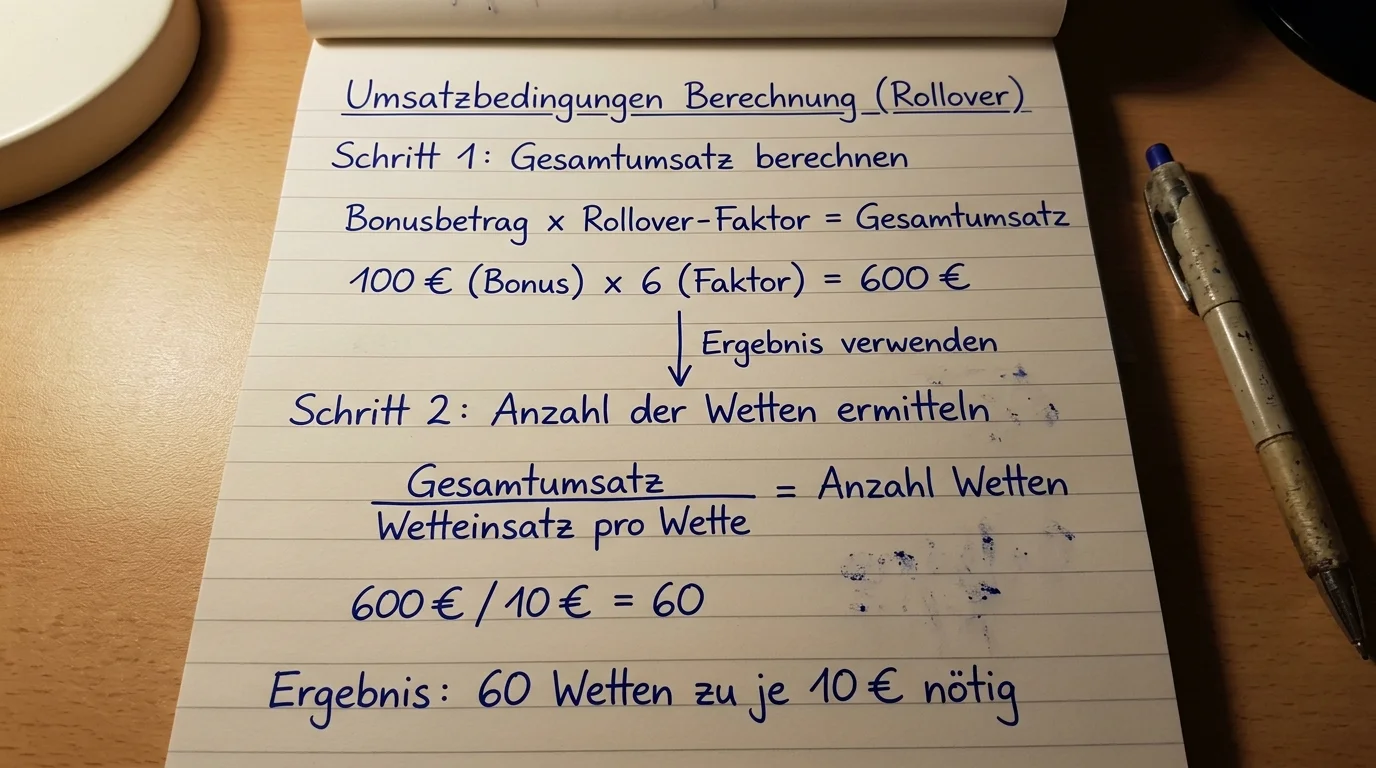 Umsatzbedingungen Berechnung (Rollover)
Schritt 1: Gesamtumsatz berechnen
Bonusbetrag x Rollover-Faktor = Gesamtumsatz
100 € (Bonus) x 6 (Faktor) = 600 €
Ergebnis verwenden
Schritt 2: Anzahl der Wetten ermitteln
Gesamtumsatz
Wetteinsatz pro Wette
= Anzahl Wetten
600 € / 10 € = 60
Ergebnis: 60 Wetten zu je 10 € nötig